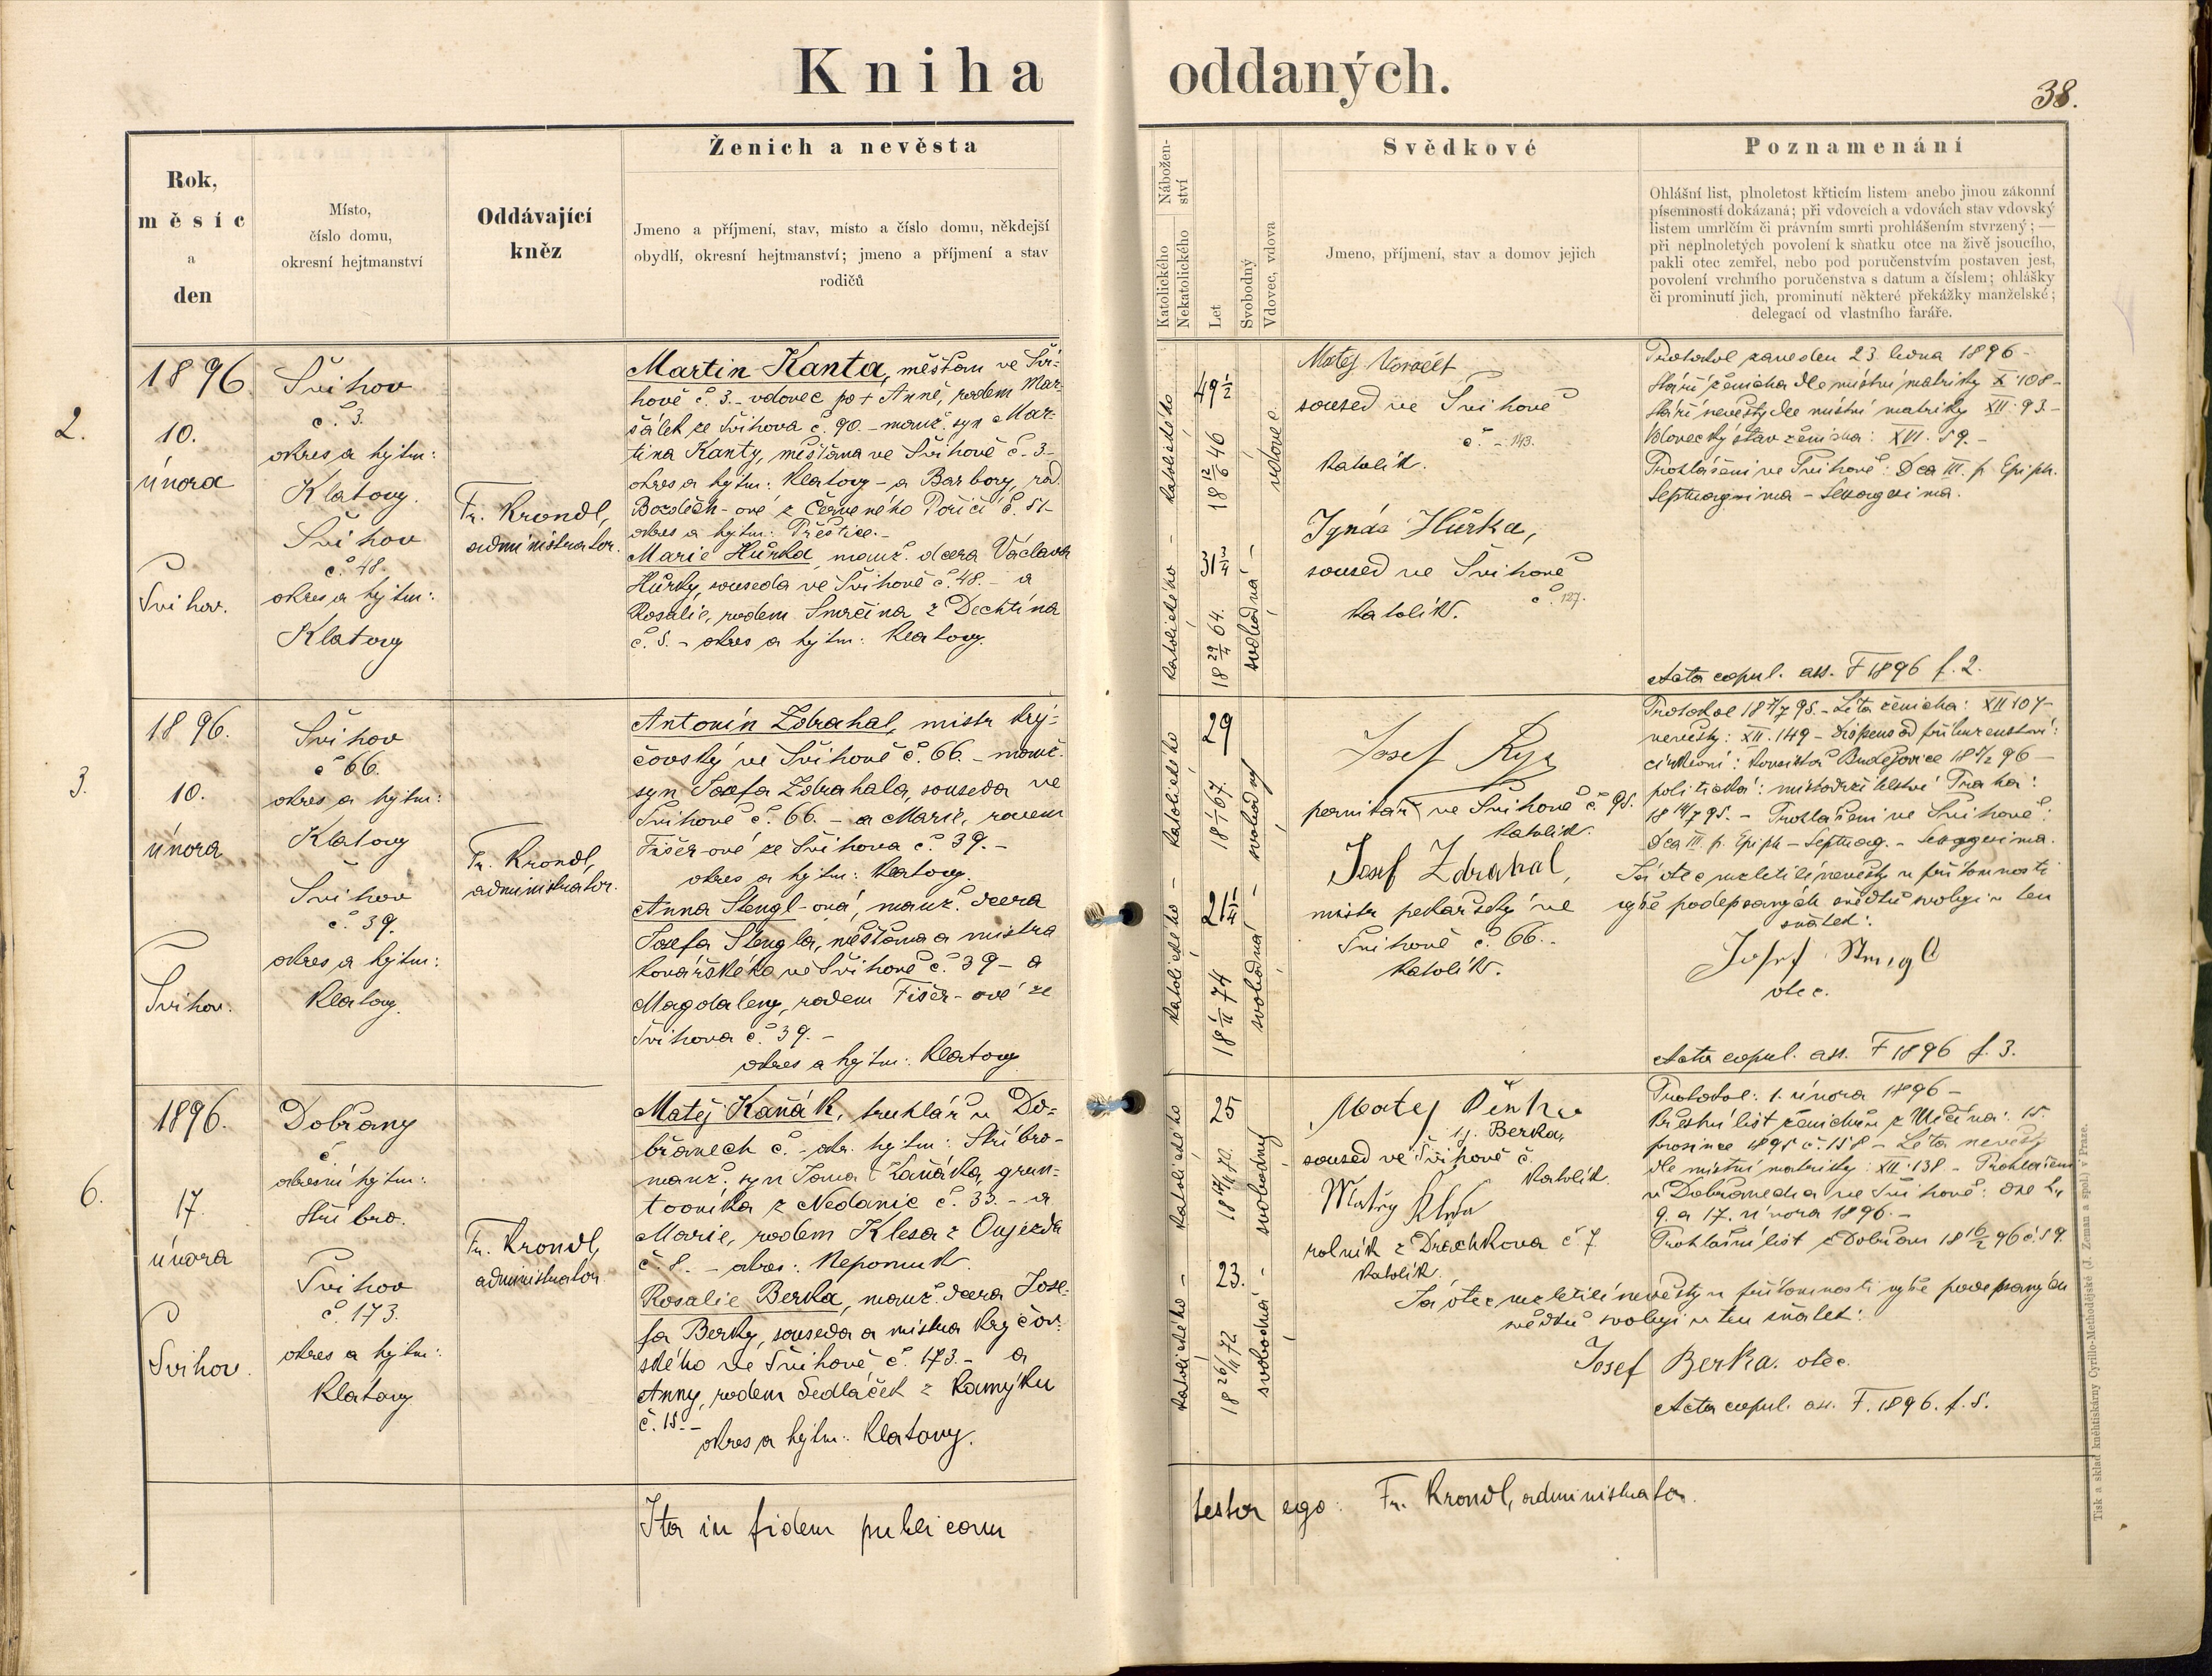 Kniha oddaných.
38.
Rok,
měsíc
a
den
Místo,
číslo domu,
okresní hejtmanství
Oddávající
kněz
Ženich a nevěsta
Jmeno a příjmení, stav, místo a číslo domu, někdejší
obydlí, okresní hejtmanství; jmeno a příjmení a stav
rodičů
Nábožen-
ství
Katolického
Nekatolického
Let
Svobodný
Vdovec, vdova
Svědkové
Jmeno, příjmení, stav a domov jejich
Poznamenání
Ohlášní list, plnoletost křticím listem anebo jinou zákonní
písemností dokázaná; při vdovcích a vdovách stav vdovský
listem umrlčím či právním smrti prohlášením stvrzený; —
při neplnoletých povolení k sňatku otce na živě jsoucího,
pakli otec zemřel, nebo pod poručenstvím postaven jest,
povolení vrchního poručenstva s datum a číslem; ohlášky
či prominutí jich, prominutí některé překážky manželské;
delegací od vlastního faráře.
2.
1896
10.
února
Švihov.
Švihov
č. 3.
okres a hejtm:
Klatovy.
Švihov
č. 48.
okres a hejtm:
Klatovy
Fr. Krondl,
administrator.
Martin Kanta, měšťan ve Švi-
hově č. 3. - vdovec po + Anně, rodem Mar-
šálek ze Švihova č. 90. - manž. syn Mar-
tina Kanty, měšťana ve Švihově č. 3 -
okres a hejtm: Klatovy - a Barbory, rod.
Bozděch-ové z Červeného Poříčí č. 51 -
okres a hejtm: Přeštice. -
Marie Hůrka, manž. dcera Václava
Hůrky, souseda ve Švihově č. 48. - a
Rosalie, rodem Smrčina z Dechtína
č. 5. - okres a hejtm: Klatovy.
katolického - katolického
49 1/2
18 12/6 46
31 3/4
18 29/4 64.
vdovec.
svobodná -
Matěj
soused ve Švihově
č. - 143.
katolík.
Ignác Hůrka,
soused ve Švihově
č. 127.
katolík.
Protokol zaveden 23. ledna 1896 -
Stáří ženicha dle místní matriky X. 108 -
Stáří nevěsty dle místní matriky XII. 93. -
Vdovecký stav ženicha: XVI. 59. -
Prohlášeni ve Švihově: Dca III. p. Epiph.
Septuagesima - Sexagesima.
Acta copul. ass. F 1896 f. 2.
3.
1896.
10.
února
Švihov.
Švihov
č. 66.
okres a hejtm:
Klatovy
Švihov
č. 39.
okres a hejtm:
Klatovy.
Fr. Krondl,
administrator.
Antonín Zdrahal, mistr krej-
čovský ve Švihově č. 66. - manž.
syn Josefa Zdrahala, souseda ve
Švihově č. 66. - a Marie, rodem
Fišer-ové ze Švihova č. 39. -
okres a hejtm: Klatovy.
Anna Stengl-ová, manž. dcera
Josefa Stengla, měšťana a mistra
kovářského ve Švihově č. 39 - a
Magdaleny, rodem Fišer-ové ze
Švihova č. 39. -
okres a hejtm: Klatovy
katolického - katolického
29
18 1/1 67.
21 1/4
18 1/11 74
svobodný
svobodná -
Josef
perníkář ve Švihově č. 95.
katolík.
Josef Zdrahal,
mistr pekařský ve
Švihově č. 66. -
katolík.
Léta ženicha: XII 107 -
nevěsty: XII. 149 - Dispens od příbuzenství:
církevní: konsistoř Budějovice
politická: místodržitelství Praha:
Prohlášeni ve Švihově:
Dca III. p. Epiph - Septuag. - Sexagesima.
Já otec nezletilé nevěsty u přítomnosti
výše podepsaných svědků svoluji v ten
sňatek:
Josef Stengl
otec.
Acta copul. ass. F 1896 f. 3.
6.
1896.
17.
února
Švihov.
Dobřany
č
okresní hejtm:
Stříbro.
Švihov
č. 173.
okres a hejtm:
Klatovy
Fr. Krondl,
administrator
Matěj Kaňák, truhlář v Do-
břanech č. - okr. hejtm: Stříbro -
manž. syn Jana Kaňáka, grun-
tovníka z Nedanic č. 33. - a
Marie, rodem Klesa z Oujezda
č. 8. - okres: Nepomuk.
Rosalie Berka, manž. dcera Jose-
fa Berky, souseda a mistra krejčov-
ského ve Švihově č. 173. - a
Anny, rodem Sedláček z Kamýku
č. 15. -
okres a hejtm: Klatovy.
katolického - katolického
25
23.
18 26/11 72
svobodný
svobodná -
Matej
Berka,
soused ve Švihově č.
katolík
rolník z Drachkova č. 7
katolík.
Protokol: 1. února 1896 -
Křestní list ženichův z Měčína: 15.
prosince 1895 č. 158 - Léta nevěsty
dle místní matriky: XII. 138 - Prohlášeni
v Dobřanech a ve Švihově:
9. a 17. února 1896. -
Prohlášní list z Dobřan 18 16/2 96 č. 59.
Já otec nezletilé nevěsty u přítomnosti výše podepsaných
svědků svoluji v ten sňatek:
Josef Berka. otec.
Acta copul. ass. F. 1896. f. 5.
Ita in fidem publicam
testor ego: Fr. Krondl, administrator.
Tisk a sklad kněhtiskárny Cyrillo-Methodějské (J. Zeman a spol.) v Praze.